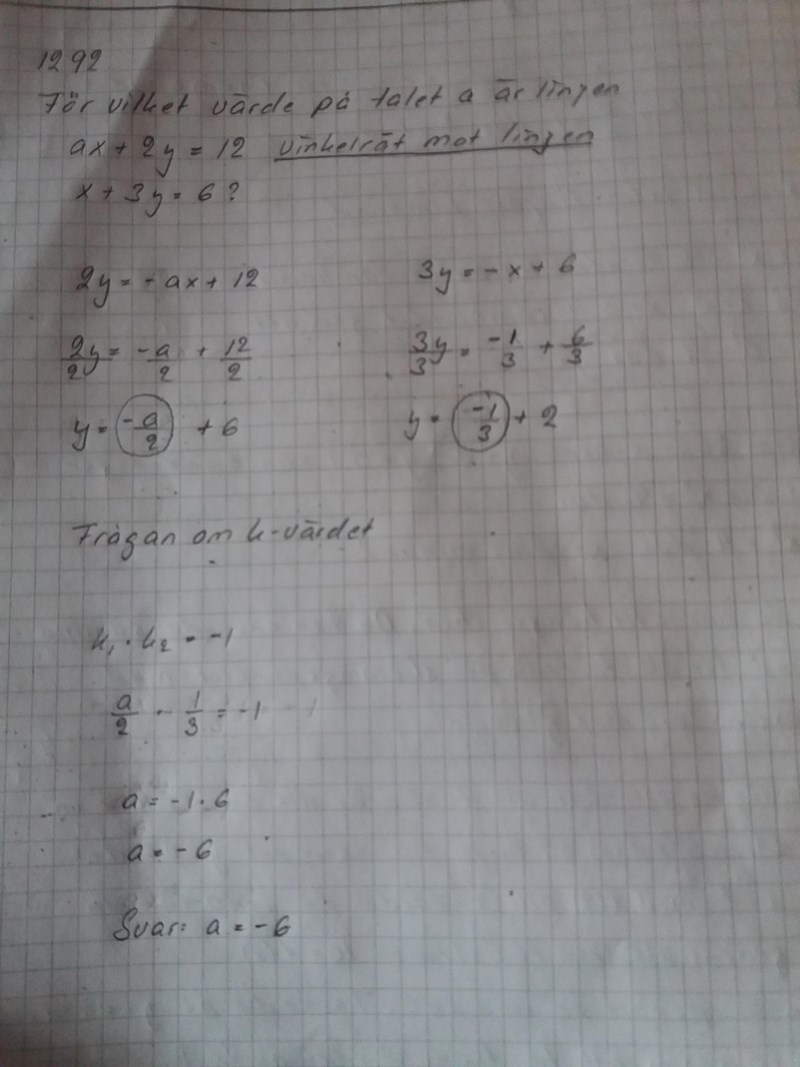 1292
För vilket värde på talet a är linjen
ax + 2y = 12 vinkelrät mot linjen
x + 3y = 6 ?
2y = -ax + 12
3y = -x + 6
2y/2 = -a/2 + 12/2
3y/3 = -1/3 + 6/3
y = -a/2 + 6
y = -1/3 + 2
Frågan om k-värdet
k₁ · k₂ = -1
a/2 · - 1/3 = -1
a = -1 · 6
a = -6
Svar: a = -6